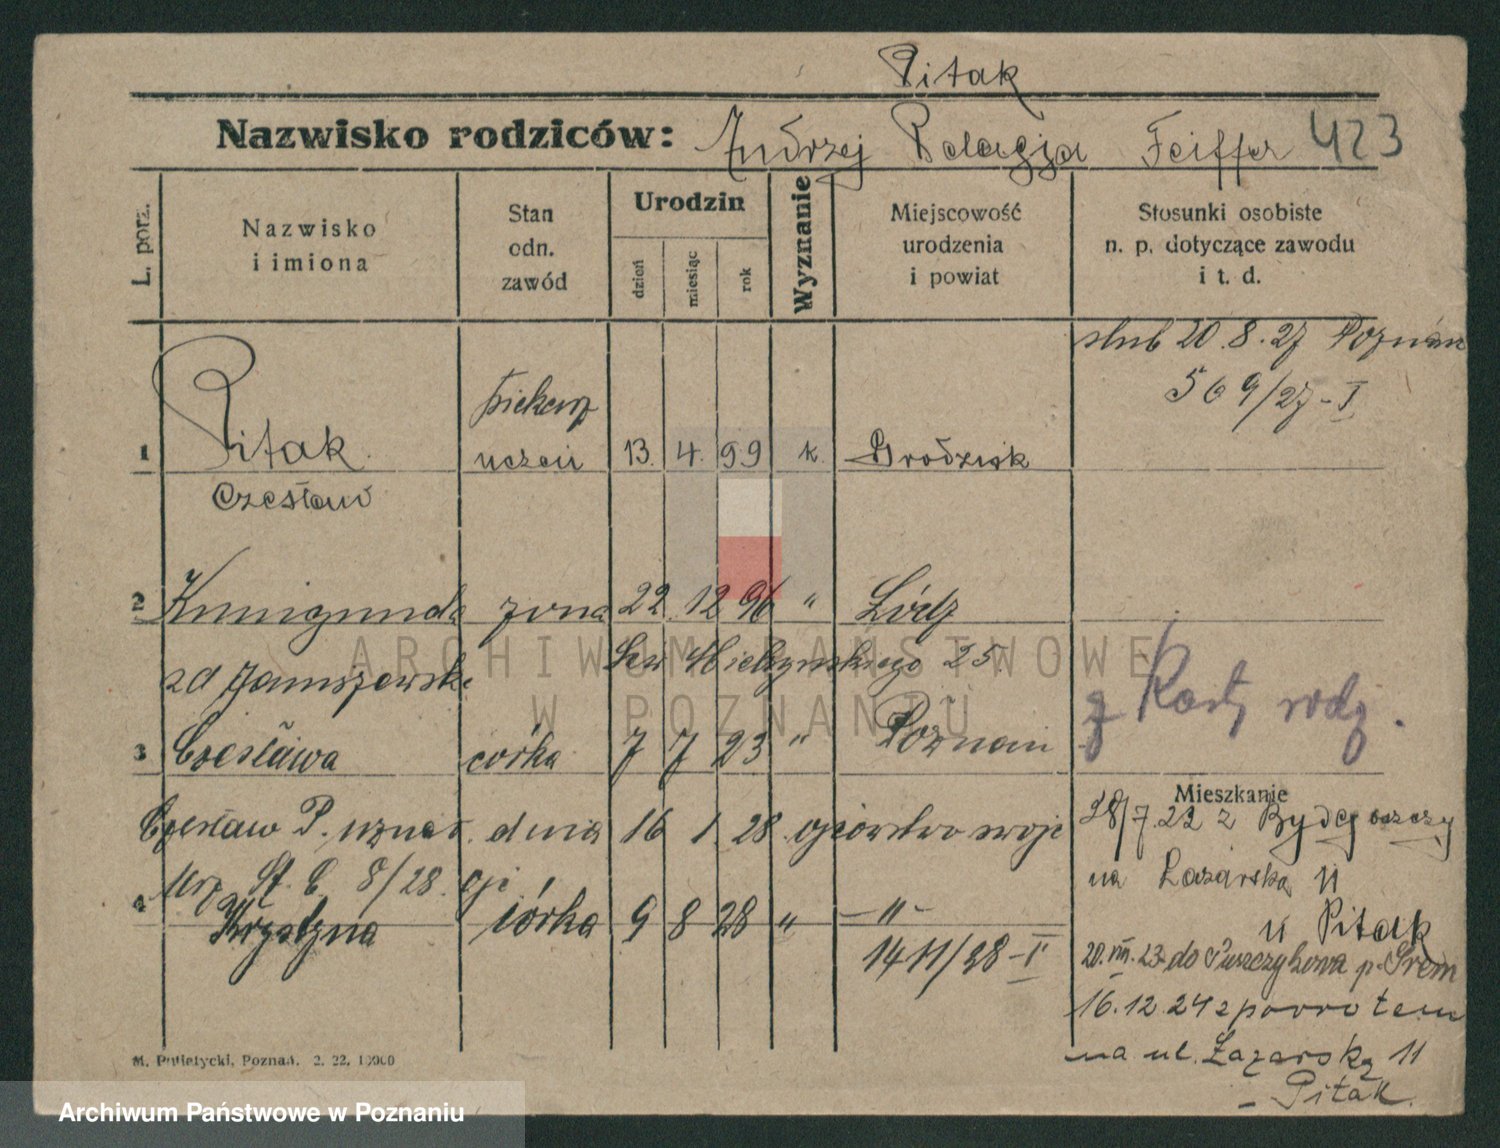 Pitak
Nazwisko rodziców: Andrzej Pelagja Feiffer 423
L. porz.
Nazwisko
i imiona
Stan
odn.
zawód
Urodzin
dzień
miesiąc
rok
Wyznanie
Miejscowość
urodzenia
i powiat
Stosunki osobiste
n. p. dotyczące zawodu
i t. d.
ślub 20.8.27 Poznań
569/27-I
1 Pitak uczeń 13. 4. 99 k. Grodzisk
Czesław
2 Kunigunda żona 22 12 96 " Łódź
zd Januszewska Sew Mielżynskiego 25
z Karty rodz.
3 Czesława córka 7 7 23 " Poznań
Mieszkanie
Czesław P. uznał. dnia 16 1 28 ojcowstwo swoje
28/7.22 z Bydgoszczy
Urz. St. C. 8/28.
na Łazarska 11
4 Krystyna córka 9 8 28 " -"-
u Pitak
1411/28-I
20.VIII.23 do Puszczykowa p. Śrem
16.12.24 z powrotem
na ul. Łazarską 11
- Pitak.
M. Putiatycki, Poznań. 2. 22. 10000
ARCHIWUM PAŃSTWOWE
W POZNANIU
Archiwum Państwowe w Poznaniu